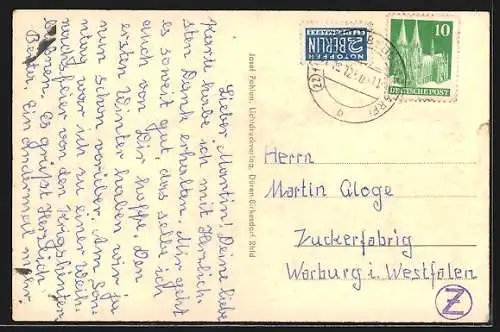 Lieber Martin! Deine liebe
Karte habe ich mit Herzlich-
sten Dank erhalten. Mir geht
es soweit gut, dass selbe ich
auch von Dir hoffe. Den
ersten Winter haben wir ja
nun schon vorüber. Am Son-
ntag war ich zu einer Weih-
nachtsfeier von den
Es grüßt Herzlich
Ein andermal mehr.
Düren-Birkesdorf Rhld
NOTOPFER
2 BERLIN
STEUERMARKE
10
DEUTSCHE POST
Herrn
Martin Gloge
Zuckerfabrig
Warburg i. Westfalen
Z